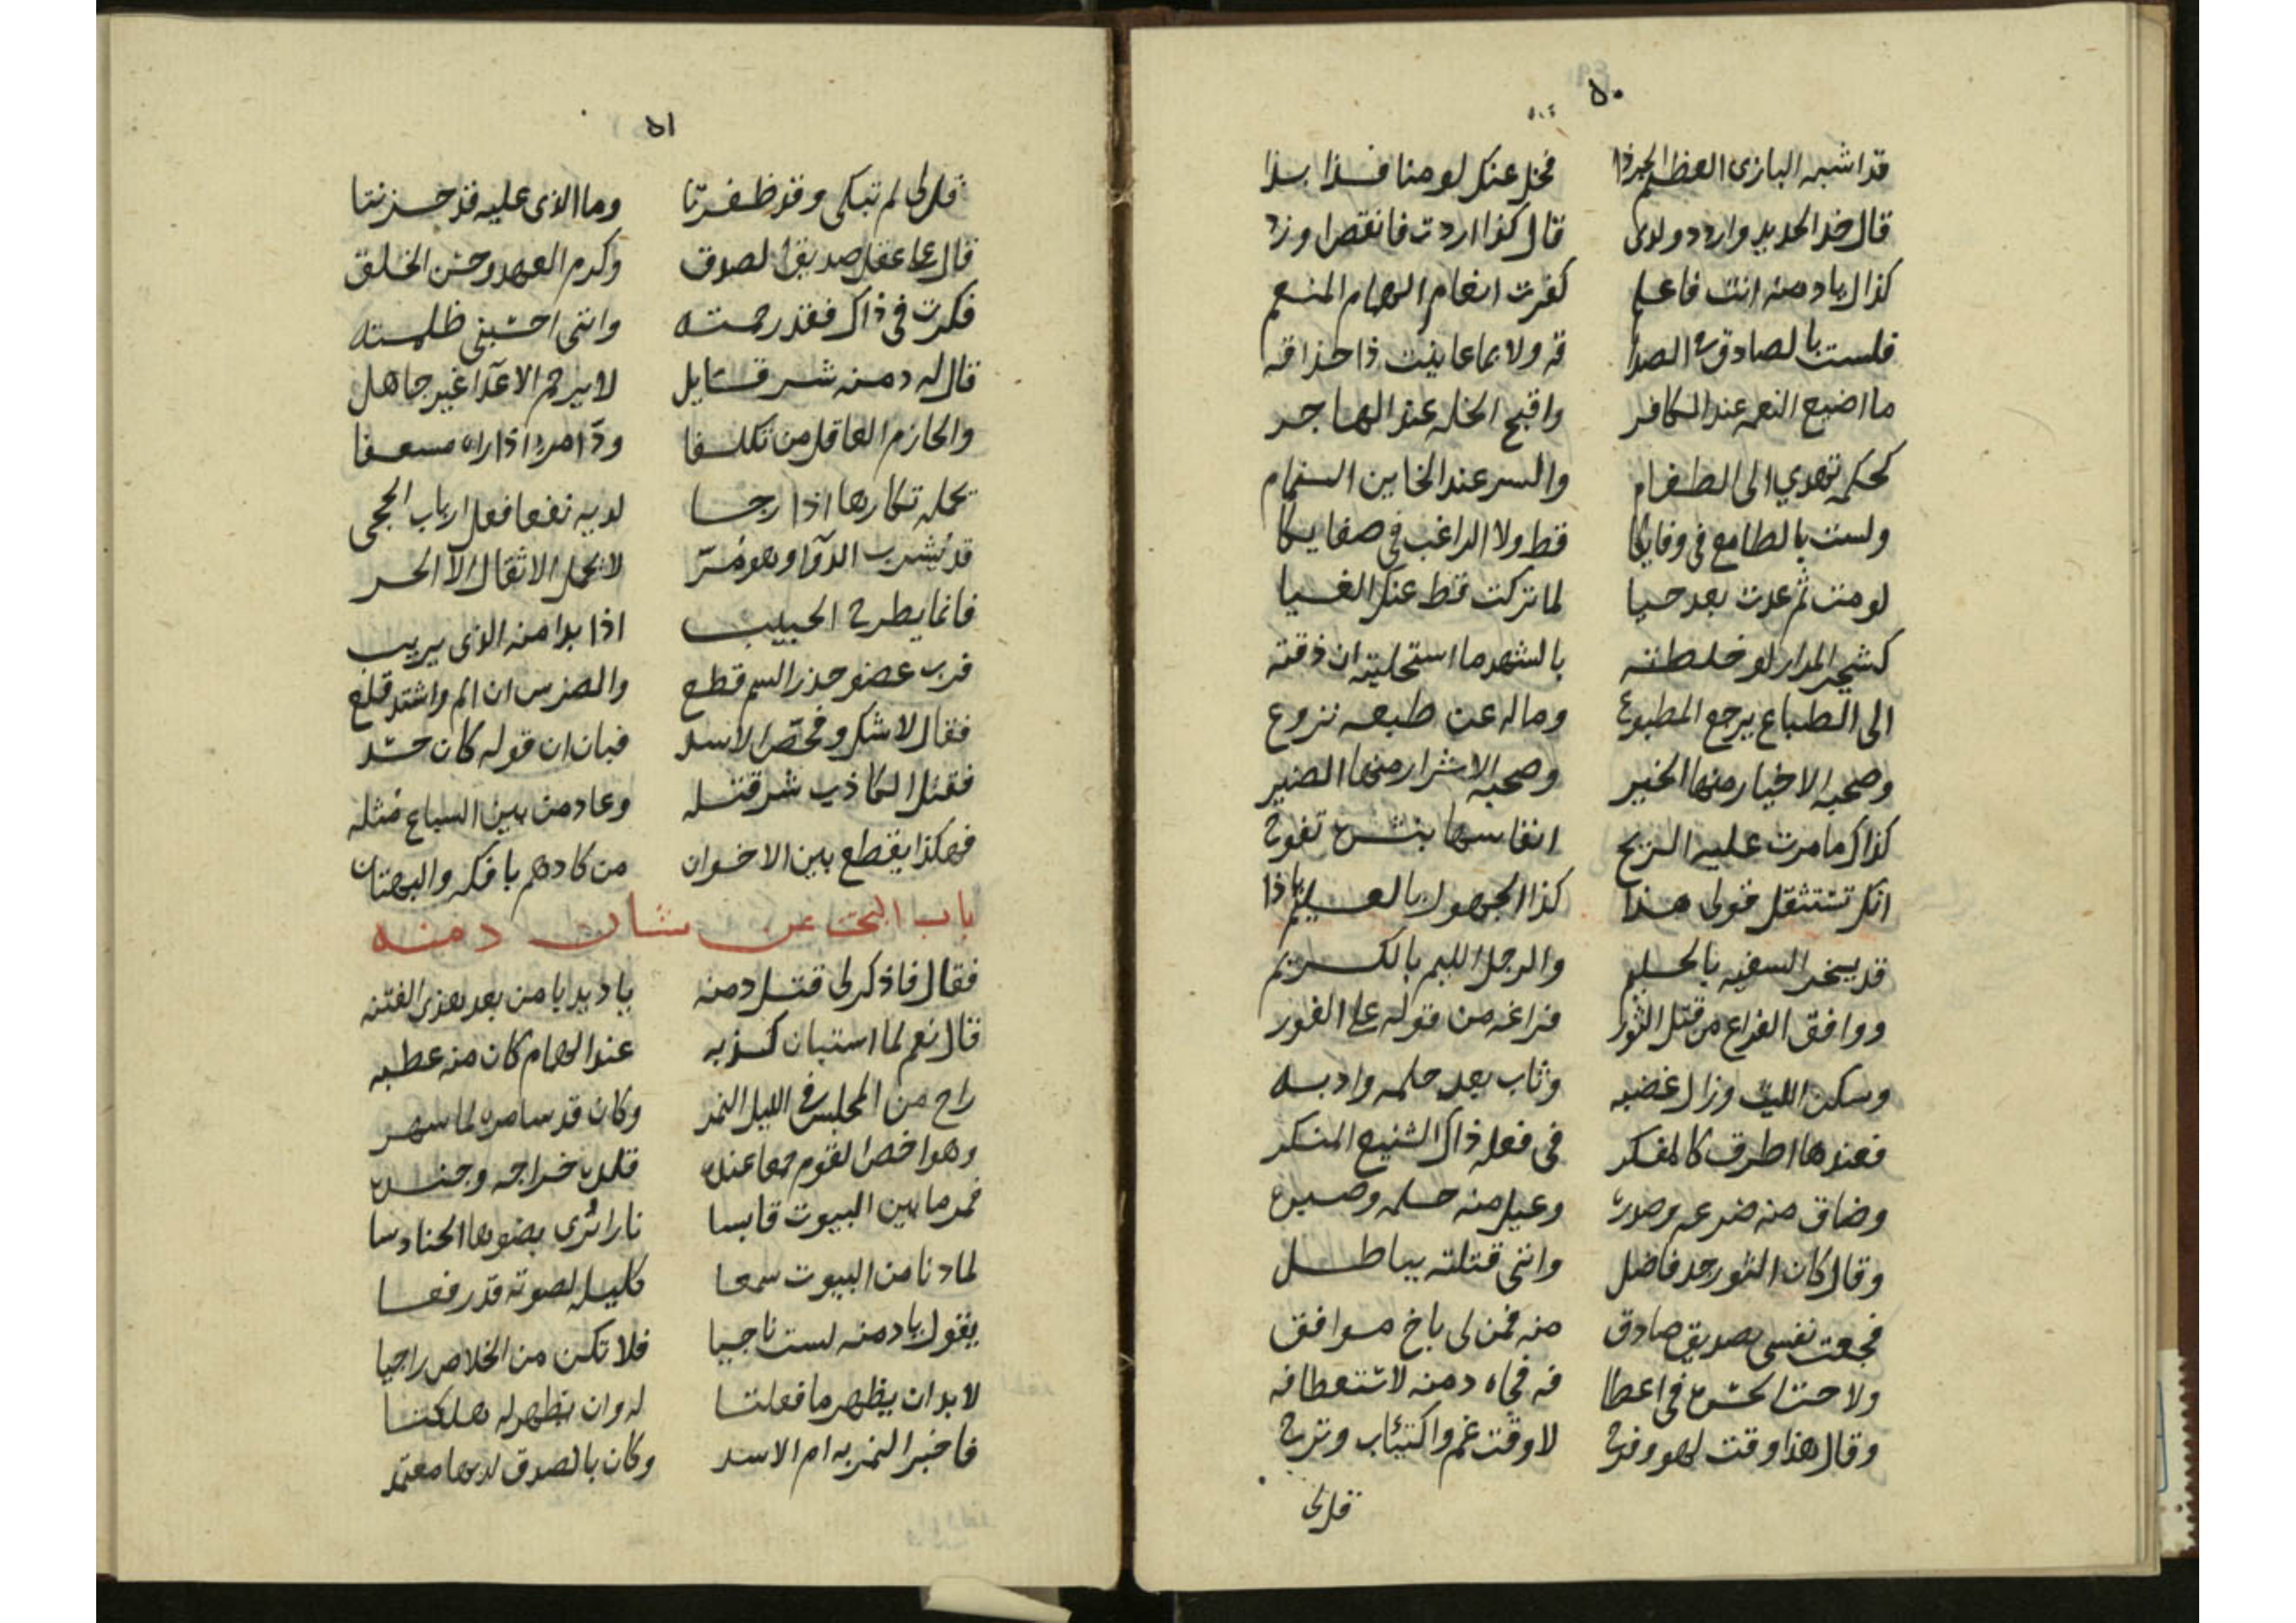 ٥٠
قد اشبه البازى العظيم الجرذا فخل عنك لومنا فذا بذا
قال خذ الحديد واردد ولدى قال كذا اردت فانقص او زد
كذاك يا دمنه انت فاعلم كفرت انعام الهمام المنعم
فلست بالصادق فى الصدا قه ولا بما عاينت ذا حذاقه
ما اضيع النعمه عند الكافر واقبح الخله عند الهاجر
كحكمه تهدي الى الطغام والسر عند الخاين النمام
ولست بالطامع فى وفايكا قط ولا الراغب فى صفايكا
لو مت ثم عدت بعد حيا لما تركت قط عنك الغيا
كشجر المرار لو خلطته بالشهد ما استحليته ان ذقته
الى الطباع يرجع المطبوع وماله عن طبعه نزوع
وصحبه الاخيار منها الخير وصحبه الاشرار منها الضير
كذاك ما مرت عليه الريح انفاسها بنشره تفوح
انك تستثقل قولى هذا كذا الجهول بالعليم ياذا
قد يسخر السفيه بالحليم والرجل اللئيم بالكريم
ووافق الفراغ من قتل الثور فراغه من قوله على الفور
وسكن الليث وزال غضبه وثاب بعد حلمه وادبه
فعندها اطرق كالمفكر فى فعله ذاك الشنيع المنكر
وضاق منه ضرعه وصدره وعيل منه حلمه وصبره
وقال كان الثور جد فاضل واننى قتلته بباطل
فجعت نفسى بصديق صادق منه فمن لى باخ موافق
ولاحت الحسره فى اعطا فه فجاه دمنه لاستعطافه
وقال هذا وقت لهو وفرح لا وقت غم واكتئاب وترح
قل لى
٥١
قل لى لم تبكى وقد ظفرتا وما الذى عليه قد حزنتا
قال على عقل صديقى الصدوق وكرم العهد وحسن الخلق
فكرت فى ذاك فقد رحمته واننى احسبنى ظلمته
قال له دمنه شر قايل لا يرحم الاعدا غير جاهل
والحازم العاقل من تكلفا ود امرء اذا راه مسعفا
يحمله تكارها اذا رجا لديه نفعا فعل ارباب الحجى
قد يشرب الدوا وهو مر لا يحمل الاثقال الا الحر
فانما يطرح الحبيب اذا بدا منه الذى يريب
فرب عضو حذر السم قطع والضرس ان الم واشتد قلع
فقال لا شك وفحص الاسد فبان ان قوله كان حسد
فقتل الكاذب شر قتله وعاد من بين السباع مثله
فهكذا يقطع بين الاخوان من كادهم بافكه والبهتان
باب البحث عن شان دمنه
فقال فاذكر لى قتل دمنه يا دبديا من بعد هذى الفتنه
قال نعم لما استبان كذبه عند الهمام كان منه عطبه
راح من المجلس فى الليل النمر وكان قد سامره لما سهر
وهو اخص القوم جمعا عنده قلده خراجه وجنده
فمر ما بين البيوت قابسا نارا ترى بضوها الحنادسا
لما دنا من البيوت سمعا كليله لصوته قد رفعا
يقول يا دمنه لست ناجيا فلا تكن من الخلاص راجيا
لا بد ان يظهر ما فعلتا له وان يظهر له هلكتا
فاخبر النمر به ام الاسد وكان بالصدق لديها معتمد